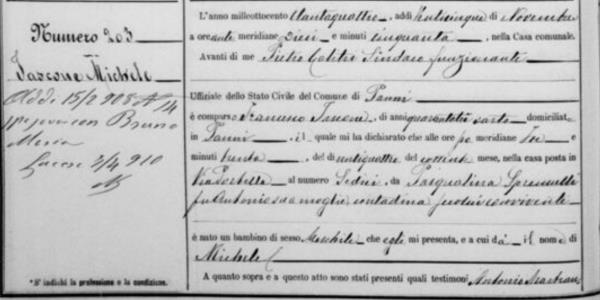 Numero 203
Iascone Michele
Addì 15/2 908 N 14
sposava con Bruno
Maria
Lucera 2/4 910
L'anno milleottocento ottantaquattro, addì venticinque di Novembre
a ore ante meridiane dieci e minuti cinquanta, nella Casa comunale.
Avanti di me Pietro Sindaco funzionante
Uffiziale dello Stato Civile del Comune di Panni
è comparso, di anni quarantatre sarto domiciliato
in Panni il quale mi ha dichiarato che alle ore po meridiane tre e
minuti trenta, del dì ventiquattro del corrente mese, nella casa posta in
Via Portella al numero Sedici, da Pasqualina
fu Antonio sua moglie contadina convivente
è nato un bambino di sesso Maschile che egli mi presenta, e a cui dà il nome di
Michele
A quanto sopra e a questo atto sono stati presenti quali testimoni Antonio
*S'indichi la professione o la condizione.